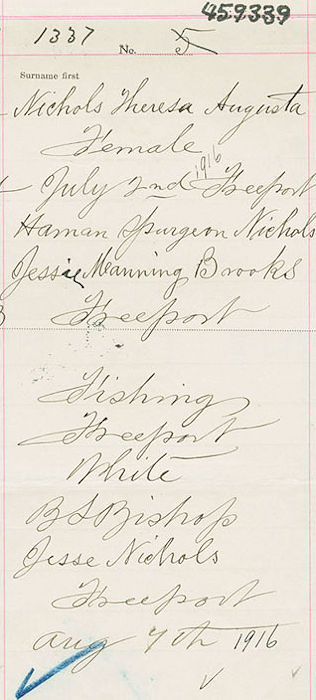 459339
1337 No. 5
Surname first
Nichols Theresa Augusta
Female
1916
July 2nd Freeport
Haman Spurgeon Nichols
Jessie Manning Brooks
Freeport
Fishing
Freeport
White
B S Bishop
Jesse Nichols
Freeport
Aug 7th 1916